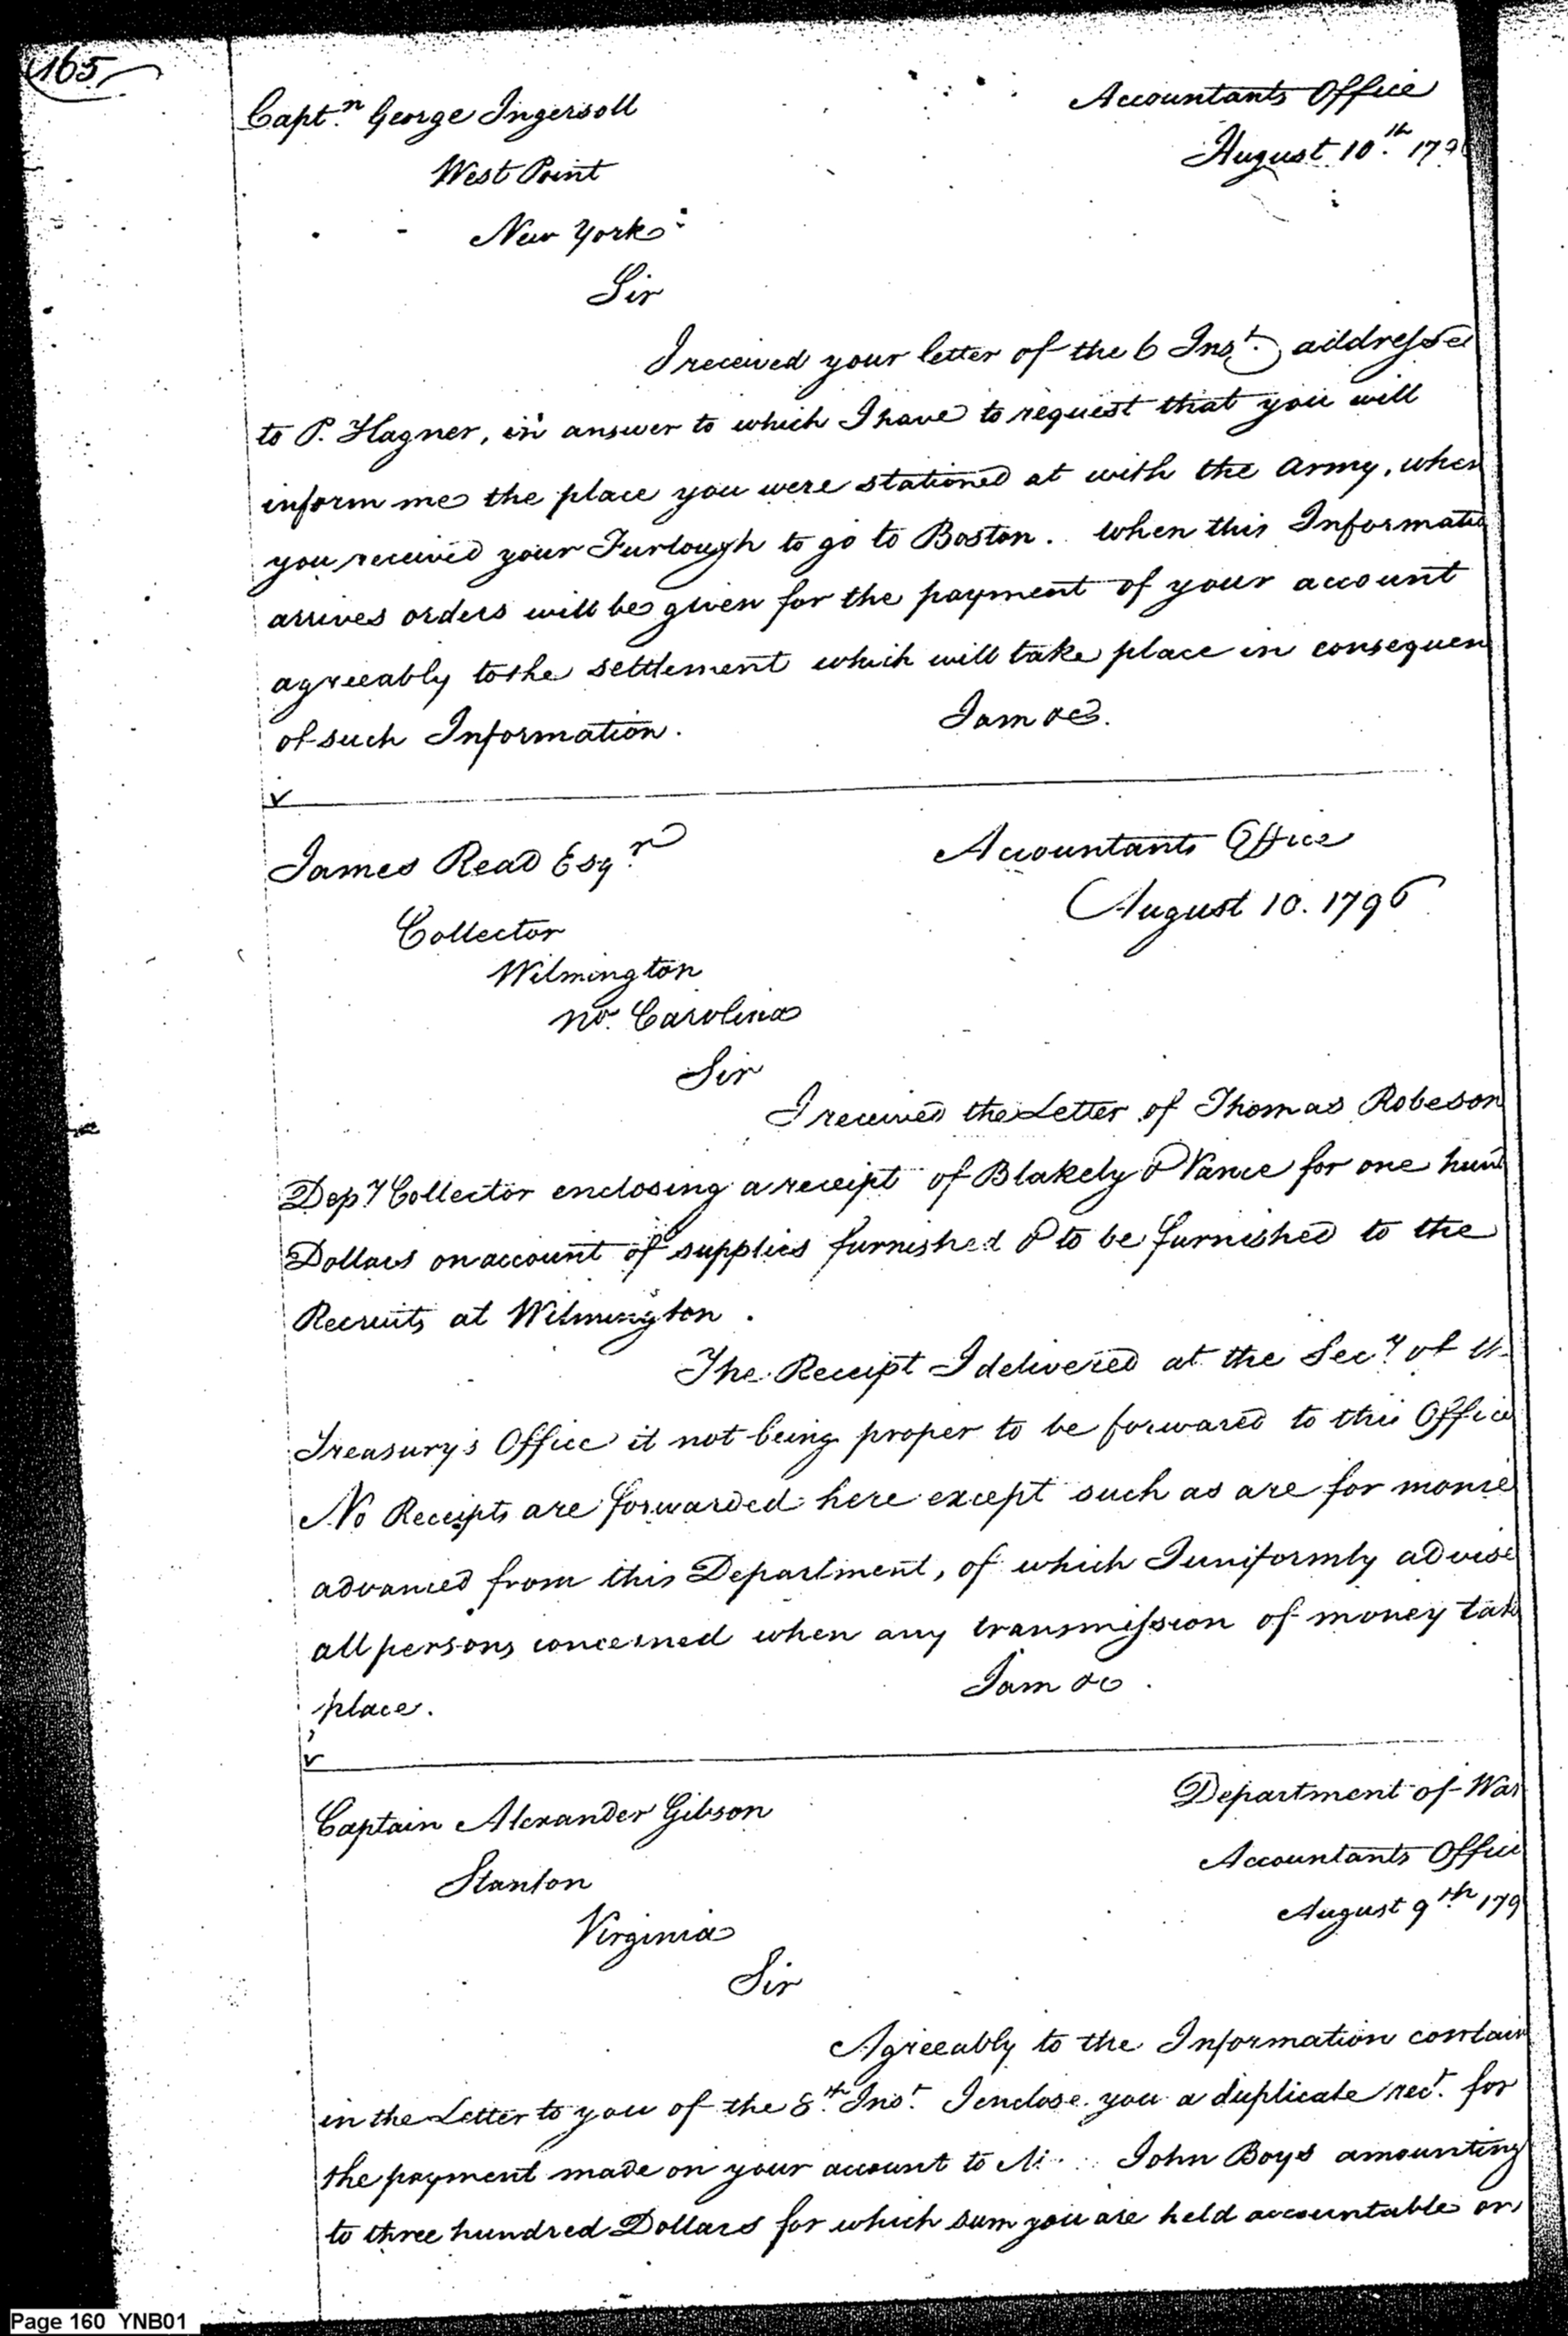 165
Captn. George Ingersoll
Accountants Office
West Point
August 10.th 179
New York
Sir
I received your letter of the 6 Inst. addresse
to P. Hagner, in answer to which I have to request that you will
inform me the place you were stationed at with the Army, when
you received your Furlough to go to Boston. When this Informatio
arrives orders will be given for the payment of your account
agreeably to the settlement which will take place in consequen
of such Information.
I am &c.
James Read Esqr.
Accountants Office
Collector
August 10. 1796
Wilmington
No. Carolina
Sir
I received the Letter of Thomas Robeson
Depy Collector enclosing a receipt of Blakely & Vance for one hund
Dollars on account of supplies furnished & to be furnished to the
Recruits at Wilmington.
The Receipt I delivered at the Secy. of
Treasury's Office it not being proper to be forwared to this Office
No Receipts are forwarded here except such as are for monie
advanced from this Department, of which I uniformly advise
all persons concerned when any transmission of money take
place.
I am &c.
Captain Alexander Gibson
Department of War
Stanton
Accountants Office
Virginia
August 9.th 179
Sir
Agreeably to the Information contain
in the Letter to you of the 8.th Inst. I enclose you a duplicate rect. for
the payment made on your account to John Boys amounting
to three hundred Dollars for which sum you are held accountable on
Page 160 YNB01